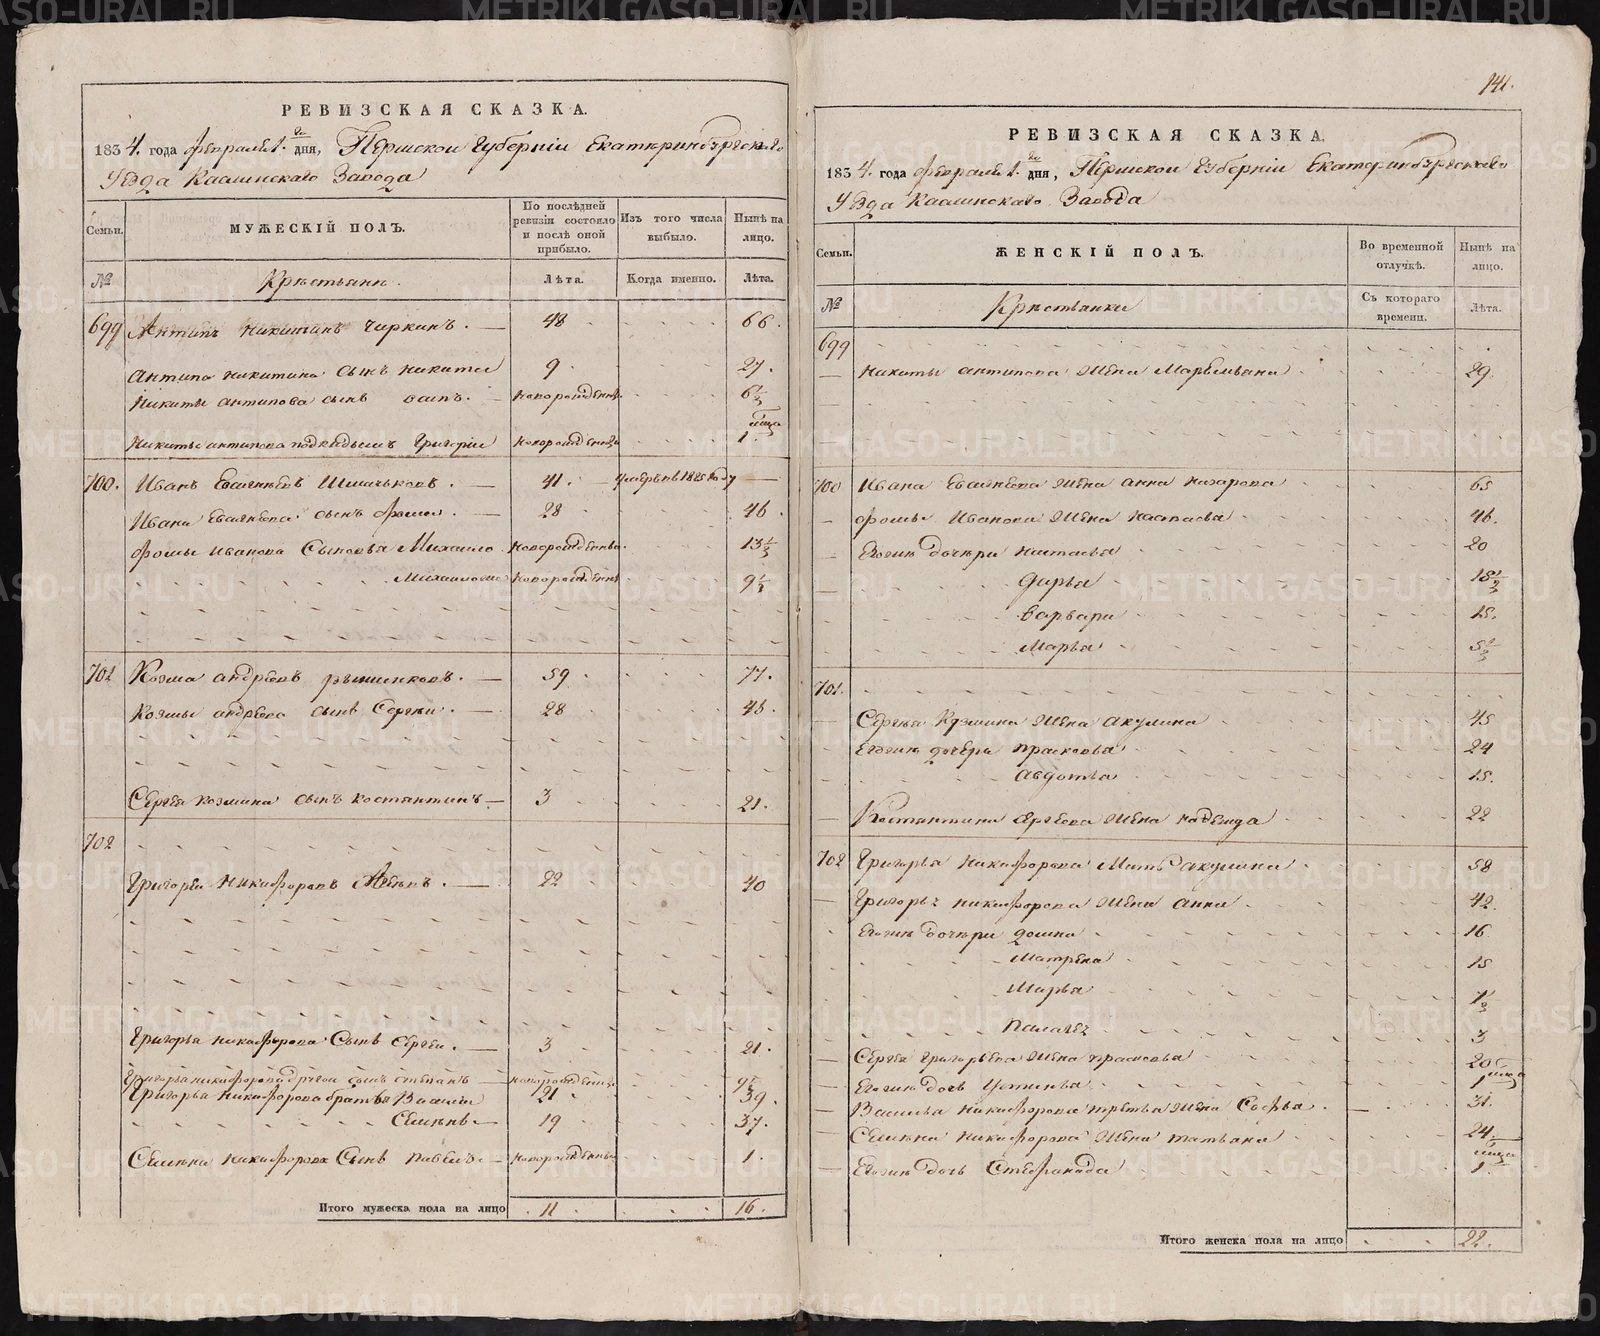 РЕВИЗСКАЯ СКАЗКА.
1834. года февраля 1. го дня, Пермской Губернии Екатеринбургскаго
Уезда Каслинскаго Завода
Семьи.
МУЖЕСКІЙ ПОЛЪ.
По послѣдней ревизіи состояло и послѣ оной прибыло.
Изъ того числа выбыло.
Нынѣ на лицо.
№
Крестьяне.
Лѣта.
Когда именно.
Лѣта.
699 Антипъ Никитинъ Чиркинъ. 48 66.
Антипа Никитина сынъ Никита 9 27.
Никиты Антипова сынъ новорожденъ 6½
Никиты Антипова Григорій новорожденъ 1
700. Иванъ 41. умеръ въ 1825 году
Ивана сынъ Фома. 28 46.
Фомы Иванова Сыновья Михайло новорожденъ. 13½
новорожденъ 9½
701 Козма Андреевъ 59. 77.
Козмы Андреева сынъ Сергей. 28 46.
Сергея Козмина сынъ Костантинъ 3 21.
702
Григорей Никифоровъ 22 40
Григорья Никифорова Сынъ Сергей. 3 21.
Григорья Никифорова другой сынъ Степанъ новорожденъ 9½
Григорья Никифорова братья Василій 21 39.
Семенъ 19 37.
Семена Никифорова Сынъ Павелъ новорожденъ 1.
Итого мужеска пола на лицо 11 16.
141.
РЕВИЗСКАЯ СКАЗКА.
1834. года февраля 1. го дня, Пермской Губерніи Екатеринбургскаго
Уезда Каслинскаго Завода
Семьи.
ЖЕНСКІЙ ПОЛЪ.
Во временной отлучкѣ.
Нынѣ на лицо.
№
Крестьянки
Съ котораго времени.
Лѣта.
699
Никиты Антипова жена 29.
700 Ивана жена Анна Назарова 65
Фомы Иванова жена 46.
Егоже дочери Настасья 20
Дарья 18½
Варвара 15.
Марья 5½
701.
Сергея Кузмина жена Акулина 45
Егоже дочери Прасковья 24
Авдотья 15.
Костантина Сергеева жена Надежда 22
702 Григорья Никифорова Мать Акулина 58
Григорья Никифорова жена Анна 42.
Егоже дочери Домна 16
Матрена 15
Марья 7½
Палагея 3
Сергея Григорьева жена Прасковья 20
Егоже дочь Устинья 1
Василья Никифорова третья жена Софья. 31.
Семена Никифорова жена Татьяна 24
Егоже дочь Стефанида 1.
Итого женска пола на лицо 22.
METRIKI.GASO-URAL.RU